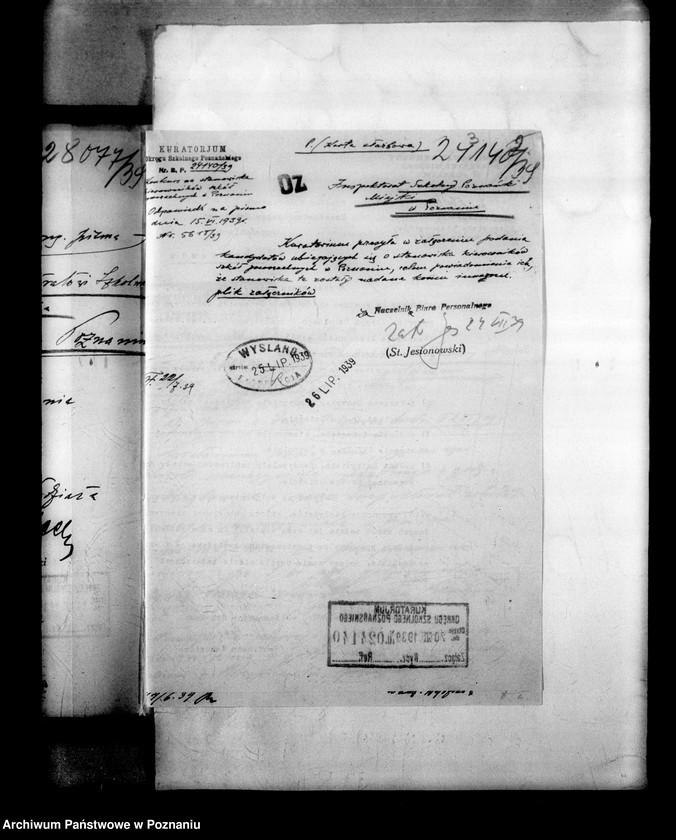 28077/39
Poznaniu
KURATORJUM
Okręgu Szkolnego Poznańskiego
Nr. B. P. 24140/39
Konkurs na stanowiska
kierowników szkół
powszechnych w Poznaniu
Odpowiedź na pismo
dnia 15.VI.1939r.
24140/39
OZ
Inspektorat Szkolny Poznański
Miejski
w Poznaniu
Kuratorium przesyła w załączeniu podania
kandydatów ubiegających się o stanowiska kierowników
szkół powszechnych w Poznaniu, celem powiadomienia ich,
że stanowiska te zostały nadane komu innemu.
plik załączników
Naczelnik Biura Personalnego
24 VII 39
(St. Jesionowski)
WYSŁANO
25 LIP. 1939
26 LIP. 1939
22/7.39
KURATORJUM
OKRĘGU SZKOLNEGO POZNAŃSKIEGO
1939 024140
Załącz. Wydz. Ref.
Archiwum Państwowe w Poznaniu